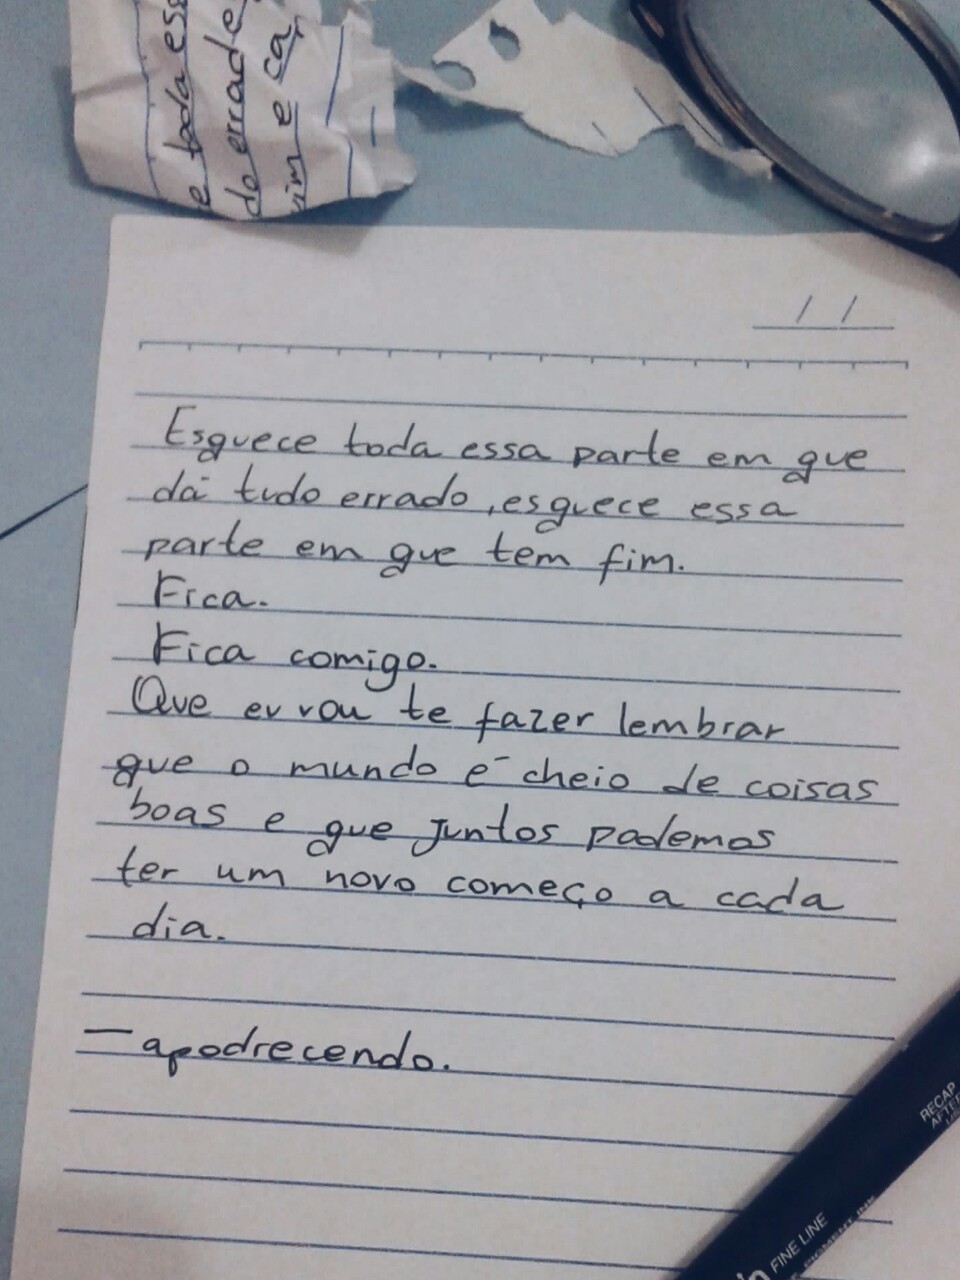 e toda ess
do errado
vim e ca
/ /
Esquece toda essa parte em que
dá tudo errado, esquece essa
parte em que tem fim.
Fica.
Fica comigo.
Que eu vou te fazer lembrar
que o mundo é cheio de coisas
boas e que juntos podemos
ter um novo começo a cada
dia.
— apodrecendo.
RECAP
AFTER
FINE LINE
PIGMENT INK